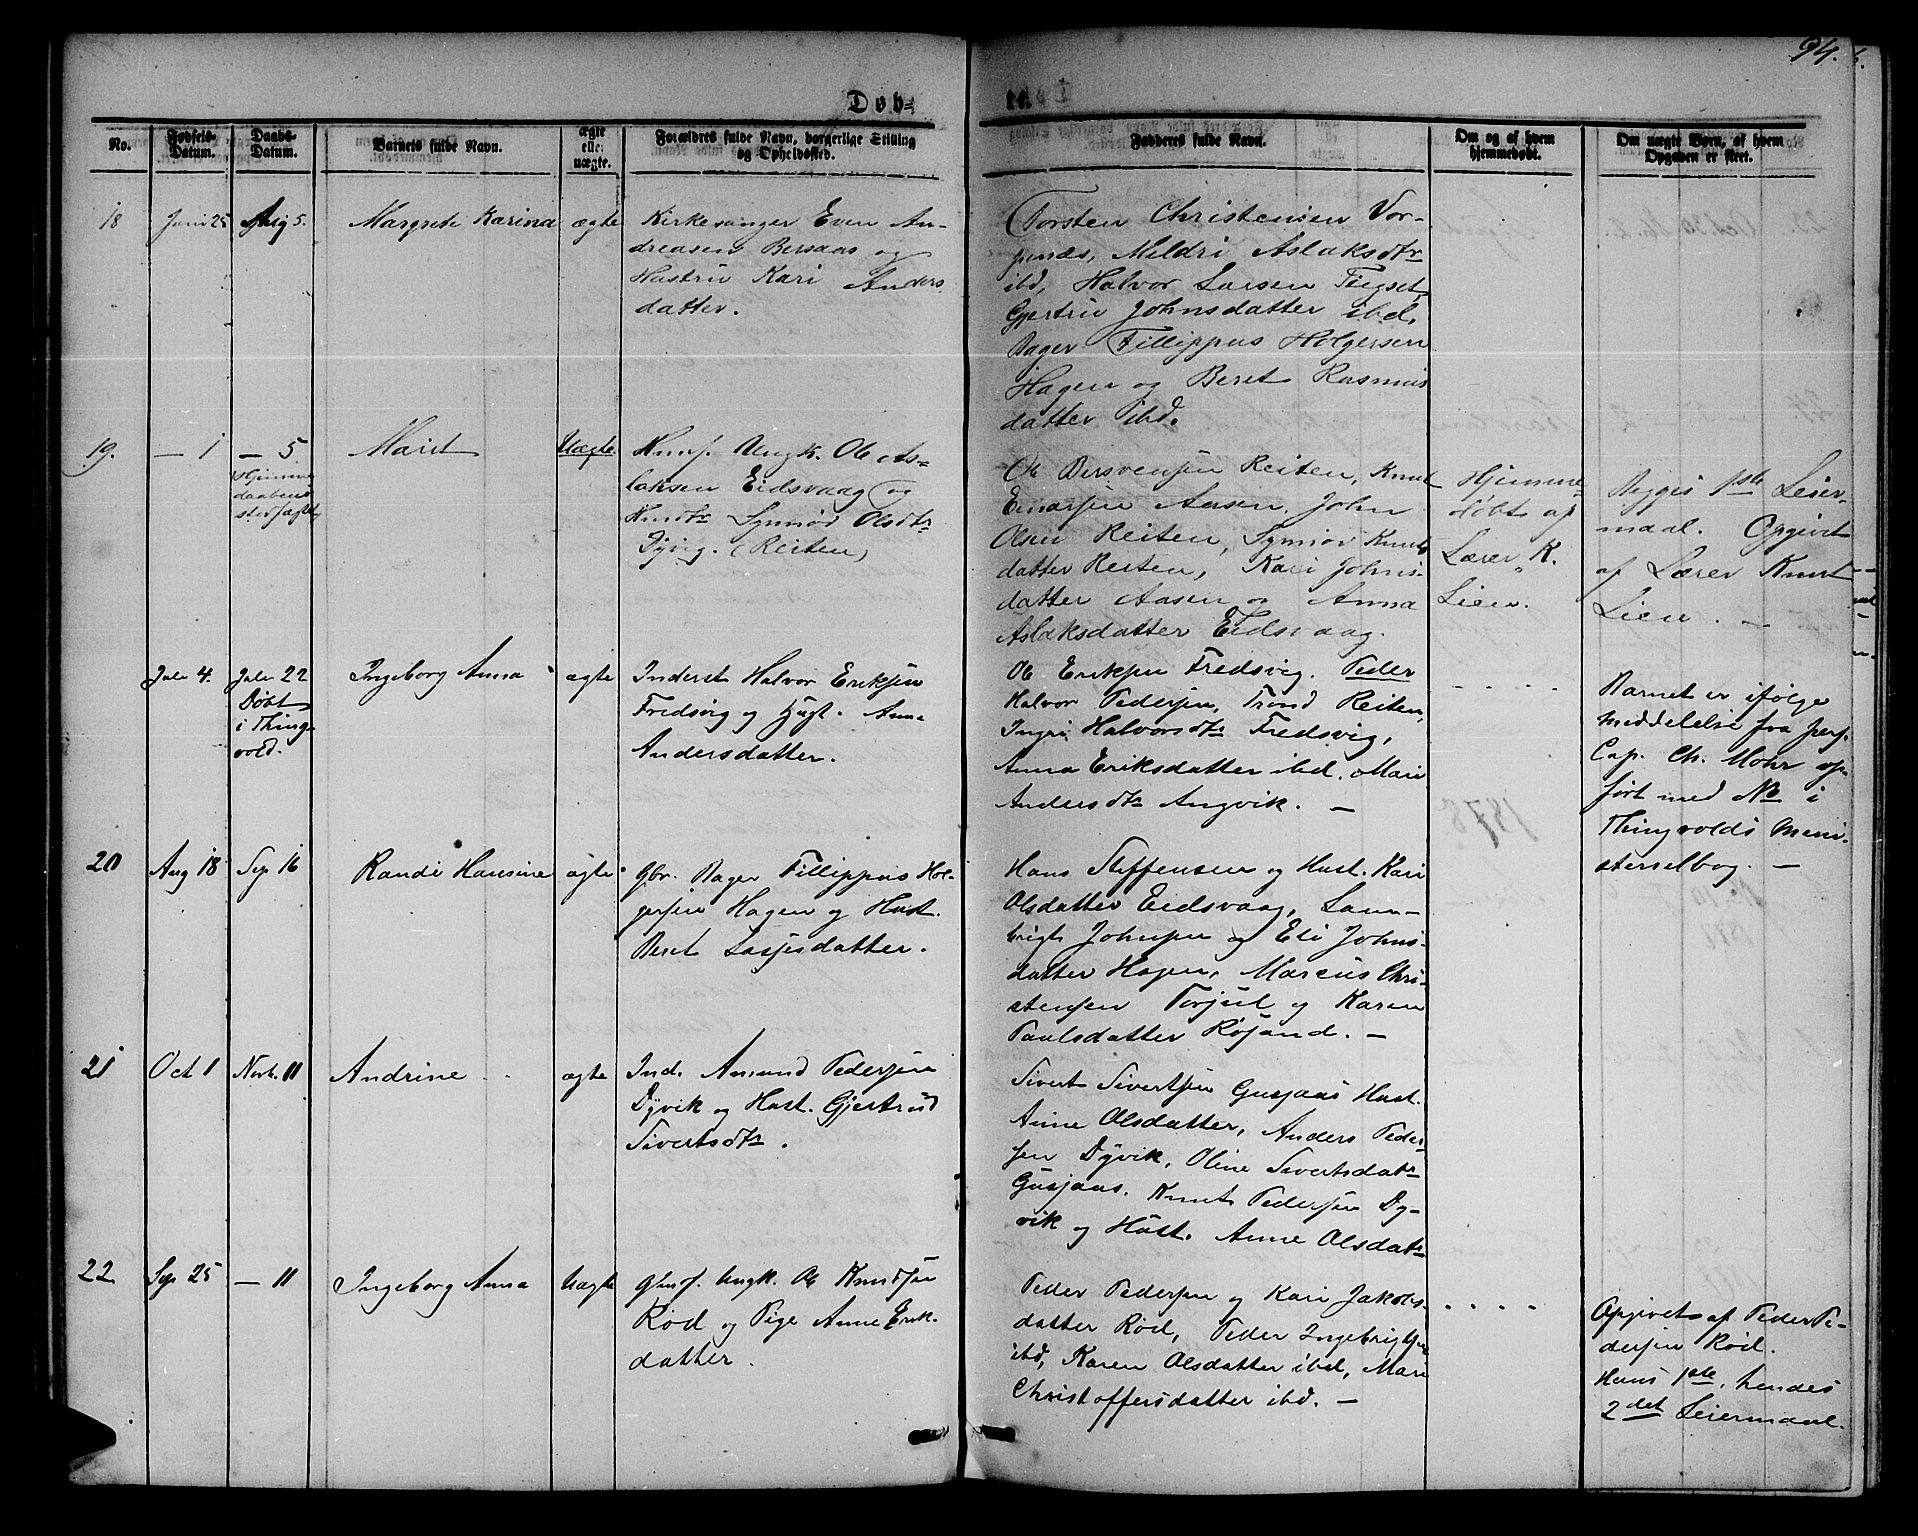 94.
Døb-
te.
No.
Fødsels-
Datum.
Daabs-
Datum.
Barnets fulde Navn.
ægte
eller
uægte.
Forældres fulde Navn, borgerlige Stilling
og Opholdssted.
Fadderes fulde Navn.
Om og af hvem
hjemmedøbt.
Om uægte Børn, af hvem
Opgaven er skeet.
18
Juni 25
Aug 5.
Margrete Karina
ægte
Kirkesanger Even An-
dreasen Bersaas og
Hustru Kari Anders
datter.
Torsten Christensen Vor-
penæs, Mildri Aslaksdtr
ibd, Halvor Larsen
Gjertru Johnsdatter ibd,
Bager Fillippus Holgersen
Hagen og Beret Rasmus
datter ibd.
19.
— 1
— 5
Hjemme
daabens
Marit
Uægte
Ungk. Ole As-
laksen Eidsvaag og
Synnøv Olsdtr
(Reiten)
Ole Bersvensen Reiten, Knut
Einarsen Aasen, John
Olsen Reiten, Synnøv Knuts
datter Reiten, Kari Johns-
datter Aasen og Anna
Aslaksdatter Eidsvaag.
Hjemme-
døbt af
Lærer K.
Lien.
Begges 1ste Leier-
maal. Opgivet
af Lærer Knut
Lien. —
Juli 4.
Juli 22
Døbt
i Thing-
vold.
Ingeborg Anna
ægte
Inderst Halvor Eriksen
Fredsvig og Anne
Andersdatter.
Ole Eriksen Fredsvig. Peder
Halvor Pedersen, Trond Reiten,
Ingri Halvorsdtr Fredsvig,
Anna Eriksdatter ibd. Mari
Andersdtr Angvik. —
Barnet er ifølge
meddelelse fra pers.
Cap. Ch. Mohr op-
ført med No i
Thingvolds Mini-
sterialbog. —
20
Aug 18
Sep 16
Randi Hansine
ægte
Gbr. Bager Fillippus Hol-
gersen Hagen og Hust.
Beret Lassesdatter.
Hans Steffensen og Hust. Kari
Olsdatter Eidsvaag, Lam-
brigt Johnsen og Eli Johns-
datter Hagen, Marcus Chri-
stensen Torjul og Karen
Paulsdatter Røsand. —
21
Oct 1
Novb. 11
Andrine
ægte
Ind. Amund Pedersen
Dyvik og Hust. Gjertrud
Sivertsdtr.
Sivert Sivertsen Gusjaas Hust.
Anne Olsdatter, Anders Peder
sen Dyvik, Oline Sivertsdatr
Gusjaas. Knut Pedersen Dy-
vik og Hust. Anne Olsdatr
22
Sep 25
— 11
Ingeborg Anna
Uægte
Ungk. Ole Knudsen
Rød og Pige Anne Erik-
datter.
Peder Pedersen og Kari Jakobs-
datter Rød, Peder Ingebrigtsen
ibd, Karen Olsdatter ibd, Mari
Christoffersdatter ibd. —
Opgivet af Peder Pe-
dersen Rød.
Hans 1ste, hendes
2det Leiermaal.